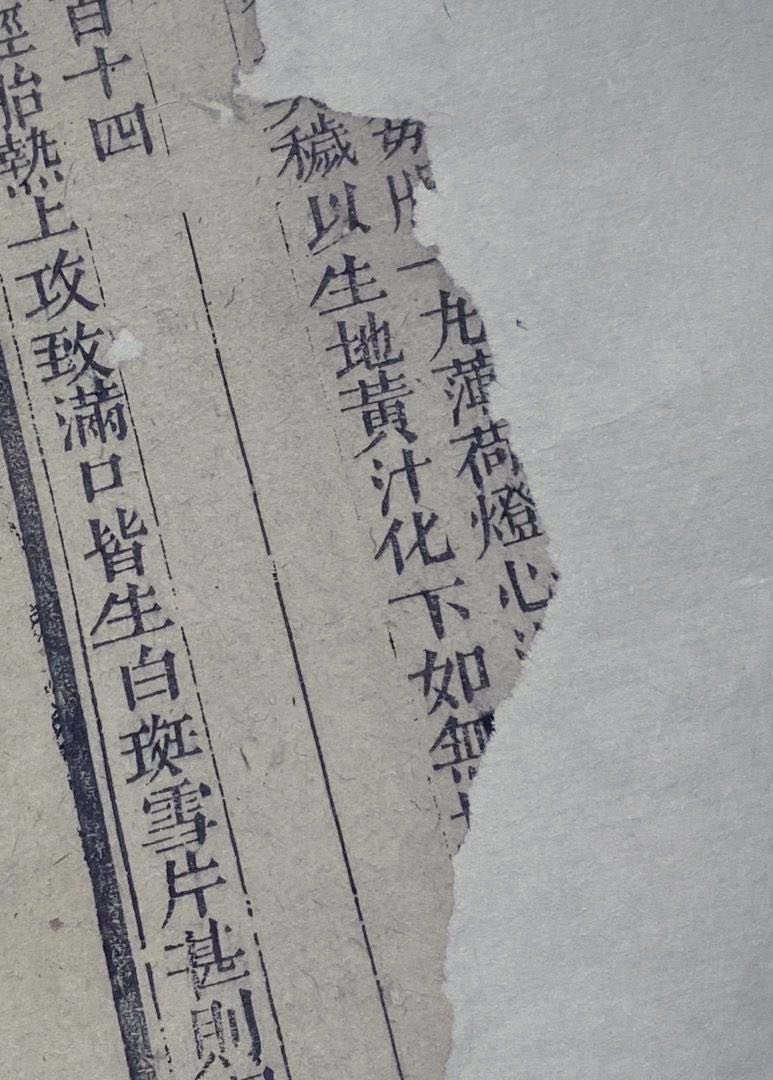 一丸薄荷燈心
穢以生地黃汁化下如無
百十四
胎熱上攻致滿口皆生白斑雪片甚則